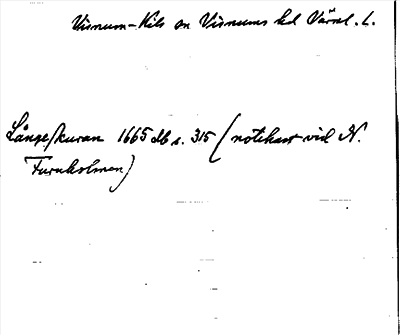 Visnum-Kils sn Visnums hd Värml. l.
Långeskuran 1665 db s. 315 (notkast vid N.
Furuholmen)